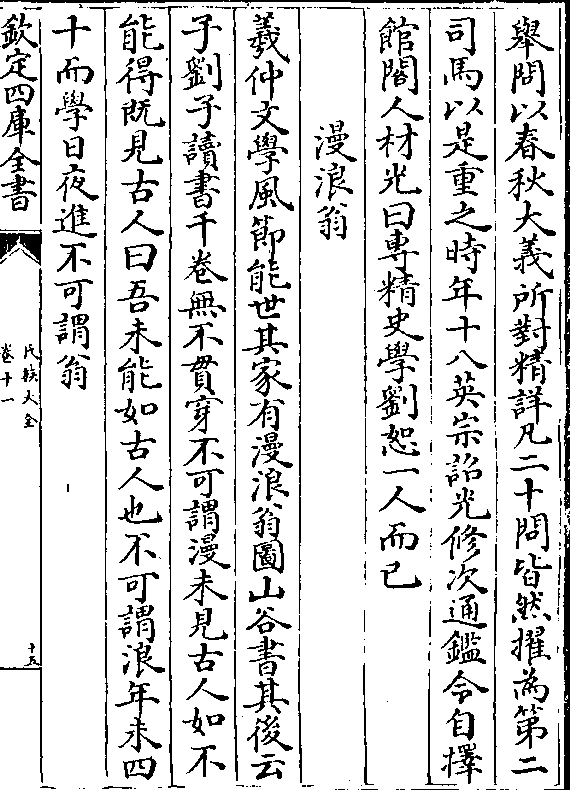 舉問以春秋大義所對精詳凡二十問皆然擢為第二
司馬以是重之時年十八英宗詔光修次通鑑令自擇
館閣人材光曰專精史學劉恕一人而已
漫浪翁
羲仲文學風節能世其家有漫浪翁圖山谷書其後云
子劉子讀書千卷無不貫穿不可謂漫未見古人如不
能得既見古人曰吾未能如古人也不可謂浪年未四
十而學日夜進不可謂翁
欽定四庫全書
氏族大全
卷十一
十五